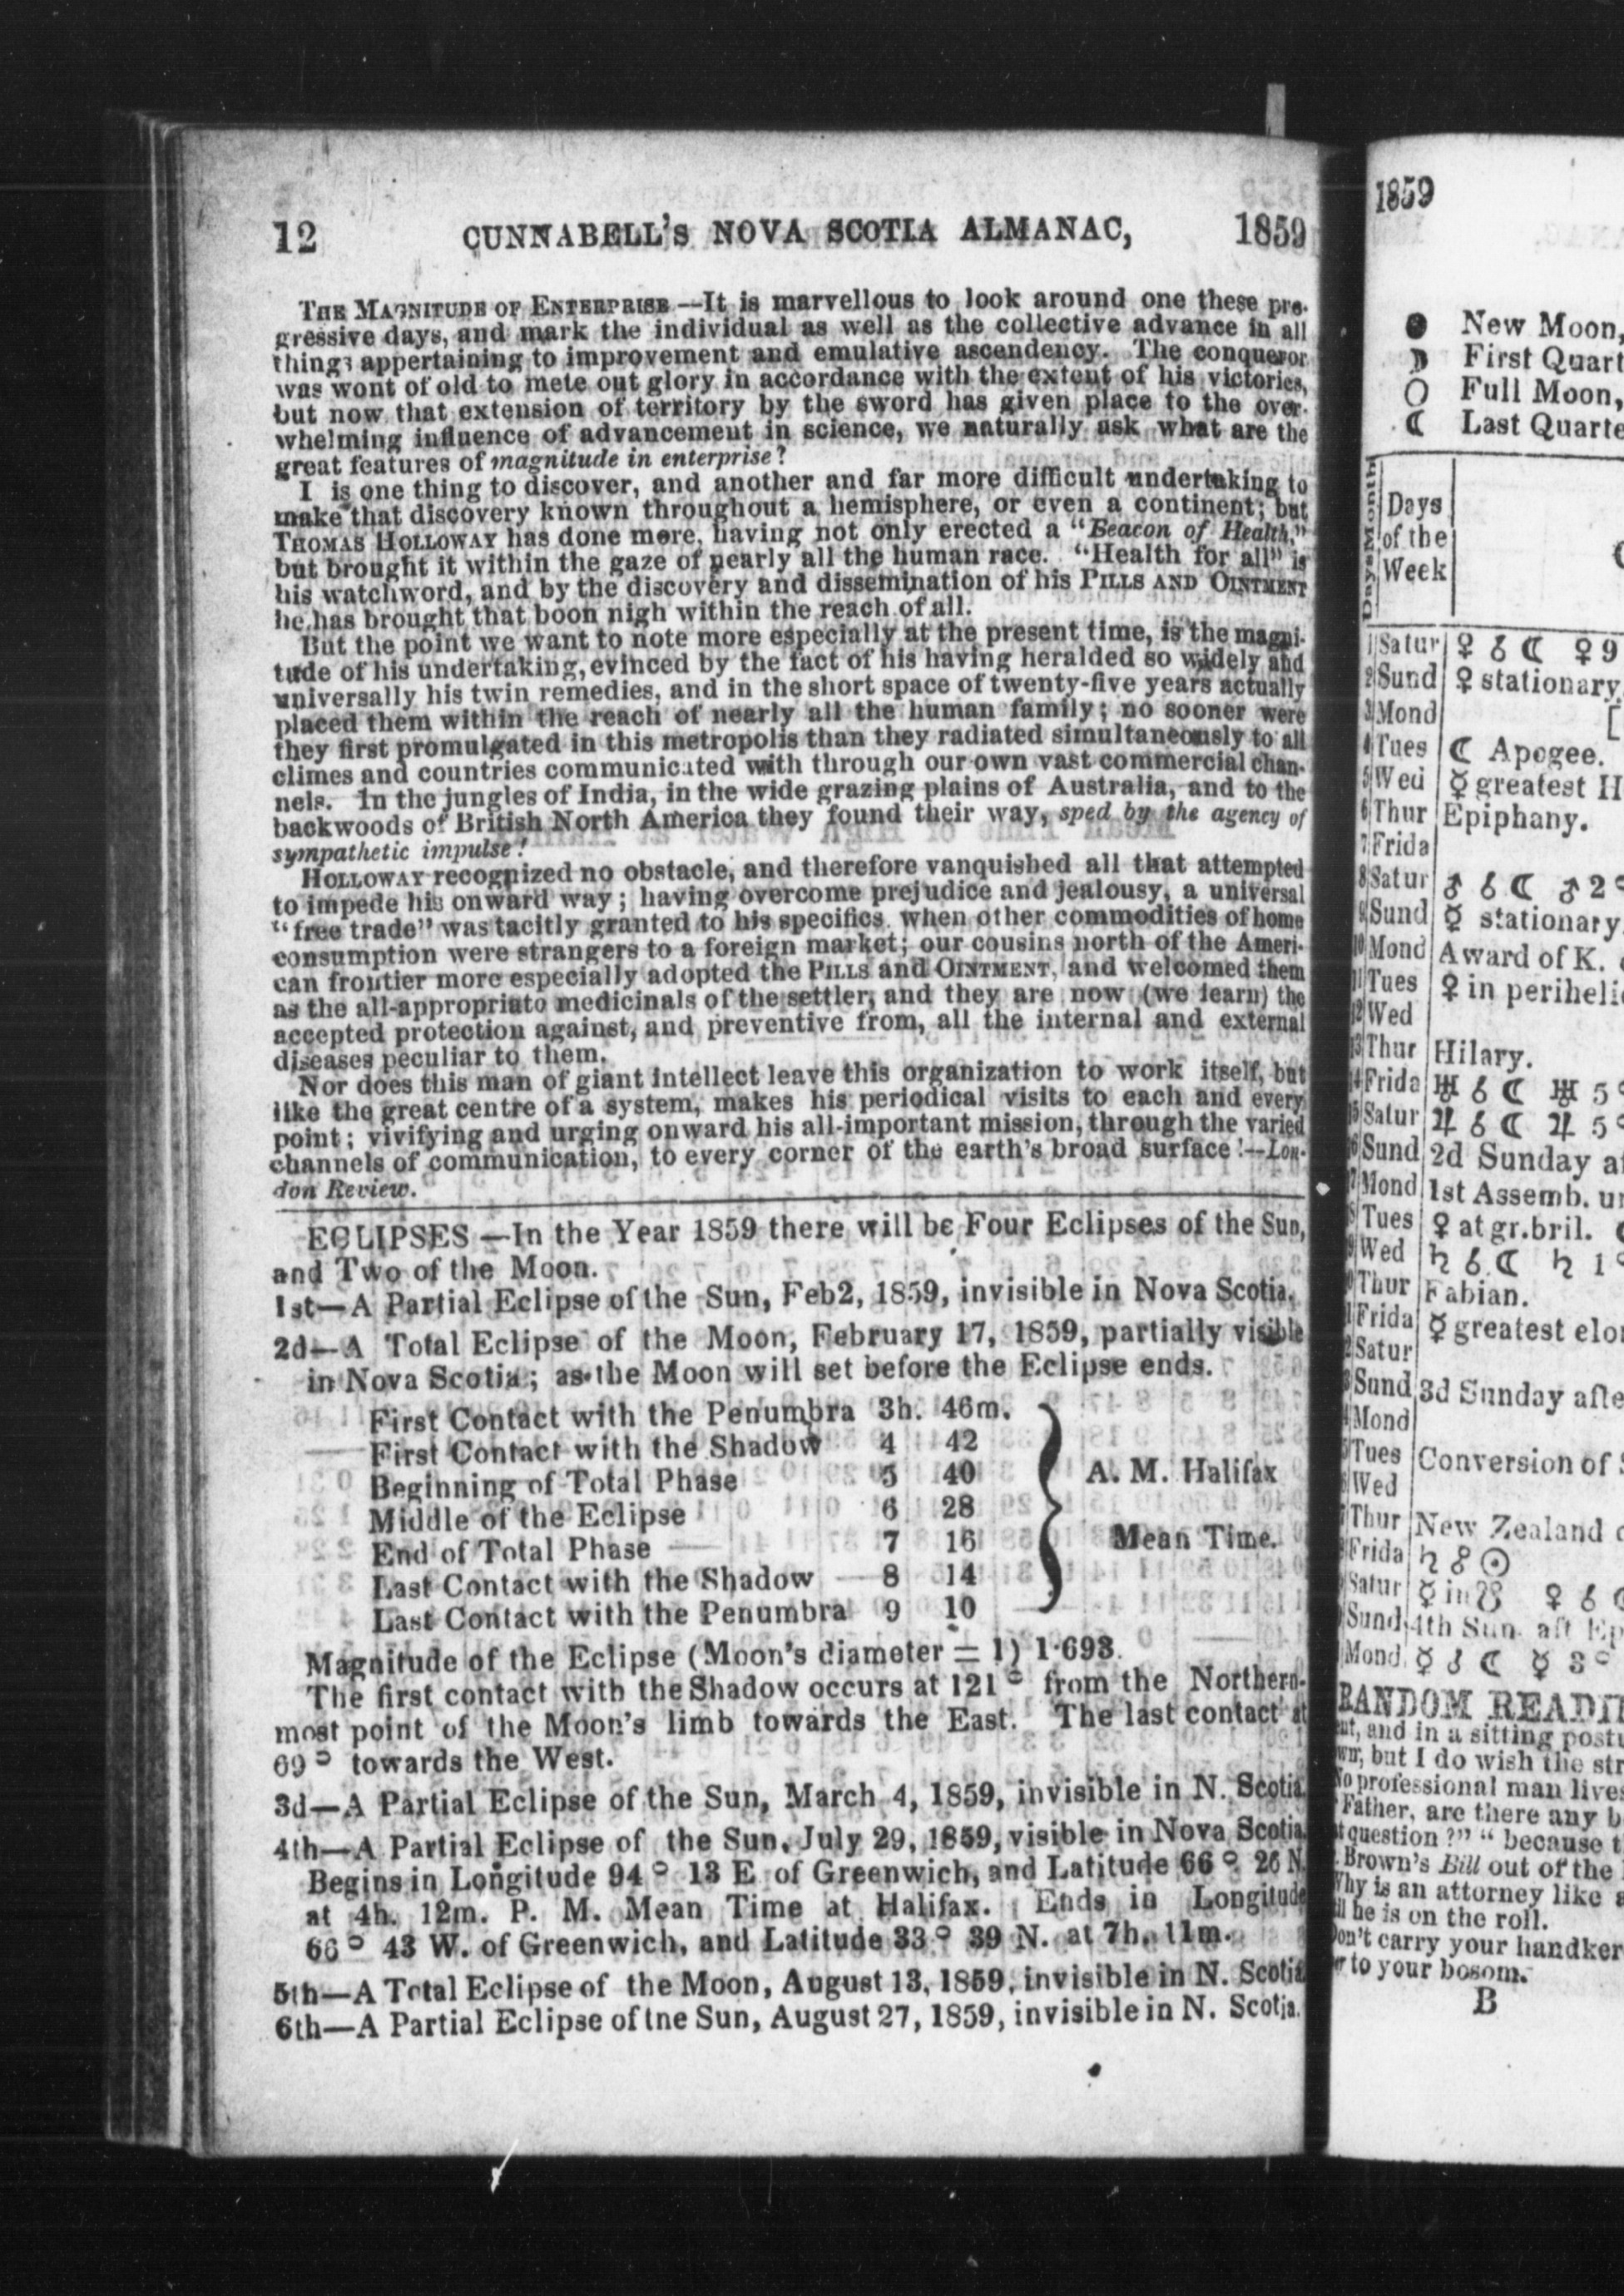 12 CUNNABELL'S NOVA SCOTIA ALMANAC, 1859
THE MAGNITUDE OF ENTERPRISE —It is marvellous to look around one these pro-
gressive days, and mark the individual as well as the collective advance in all
things appertaining to improvement and emulative ascendency. The conqueror
was wont of old to mete out glory in accordance with the extent of his victories,
but now that extension of territory by the sword has given place to the over-
whelming influence of advancement in science, we naturally ask what are the
great features of magnitude in enterprise?
I is one thing to discover, and another and far more difficult undertaking to
make that discovery known throughout a hemisphere, or even a continent; but
THOMAS HOLLOWAY has done more, having not only erected a "Beacon of Health,"
but brought it within the gaze of nearly all the human race. "Health for all" is
his watchword, and by the discovery and dissemination of his PILLS AND OINTMENT
he has brought that boon nigh within the reach of all.
But the point we want to note more especially at the present time, is the magni-
tude of his undertaking, evinced by the fact of his having heralded so widely and
universally his twin remedies, and in the short space of twenty-five years actually
placed them within the reach of nearly all the human family; no sooner were
they first promulgated in this metropolis than they radiated simultaneously to all
climes and countries communicated with through our own vast commercial chan-
nels. In the jungles of India, in the wide grazing plains of Australia, and to the
backwoods of British North America they found their way, sped by the agency of
sympathetic impulse!
HOLLOWAY recognized no obstacle, and therefore vanquished all that attempted
to impede his onward way; having overcome prejudice and jealousy, a universal
"free trade" was tacitly granted to his specifics when other commodities of home
consumption were strangers to a foreign market; our cousins north of the Ameri-
can frontier more especially adopted the PILLS and OINTMENT, and welcomed them
as the all-appropriate medicinals of the settler, and they are now (we learn) the
accepted protection against, and preventive from, all the internal and external
diseases peculiar to them.
Nor does this man of giant intellect leave this organization to work itself, but
like the great centre of a system, makes his periodical visits to each and every
point; vivifying and urging onward his all-important mission, through the varied
channels of communication, to every corner of the earth's broad surface!—Lon-
don Review.
ECLIPSES —In the Year 1859 there will be Four Eclipses of the Sun,
and Two of the Moon.
1st—A Partial Eclipse of the Sun, Feb2, 1859, invisible in Nova Scotia.
2d—A Total Eclipse of the Moon, February 17, 1859, partially visible
in Nova Scotia; as the Moon will set before the Eclipse ends.
First Contact with the Penumbra 3h. 46m.
First Contact with the Shadow 4 42
Beginning of Total Phase 5 40 A. M. Halifax
Middle of the Eclipse 6 28
End of Total Phase 7 16 Mean Time.
Last Contact with the Shadow 8 14
Last Contact with the Penumbra 9 10
Magnitude of the Eclipse (Moon's diameter = 1) 1·693.
The first contact with the Shadow occurs at 121° from the Northern-
most point of the Moon's limb towards the East. The last contact at
69° towards the West.
3d—A Partial Eclipse of the Sun, March 4, 1859, invisible in N. Scotia.
4th—A Partial Eclipse of the Sun, July 29, 1859, visible in Nova Scotia.
Begins in Longitude 94° 13 E of Greenwich, and Latitude 66° 26 N.
at 4h. 12m. P. M. Mean Time at Halifax. Ends in Longitude
66° 43 W. of Greenwich, and Latitude 33° 39 N. at 7h. 11m.
5th—A Total Eclipse of the Moon, August 13, 1859, invisible in N. Scotia
6th—A Partial Eclipse of tne Sun, August 27, 1859, invisible in N. Scotia.
1859
● New Moon,
☽ First Quart
○ Full Moon,
☾ Last Quarte
Days Month
Days
of the
Week
1 Satur ♀ ☌ ☾ ♀ 9
2 Sund ♀ stationary
3 Mond [
4 Tues ☾ Apogee.
5 Wed ☿ greatest H
6 Thur Epiphany.
7 Frida
8 Satur ♂ ☌ ☾ ♂ 2°
9 Sund ☿ stationary
10 Mond Award of K.
11 Tues ♀ in periheli
12 Wed
13 Thur Hilary.
14 Frida ♅ ☌ ☾ ♅ 5°
15 Satur ♃ ☌ ☾ ♃ 5°
16 Sund 2d Sunday af
17 Mond 1st Assemb. u
Tues ♀ at gr.bril.
9 Wed ♄ ☌ ☾ ♄ 1°
Thur Fabian.
1 Frida ☿ greatest elo
2 Satur
3 Sund 3d Sunday afte
4 Mond
5 Tues Conversion of
6 Wed
7 Thur New Zealand
8 Frida ♄ ☍ ☉
Satur ☿ in ☋ ♀ ☌
Sund 4th Sun. aft Ep
Mond ☿ ☌ ☾ ☿ 3°
RANDOM READI
, and in a sitting post
, but I do wish the str
No professional man live
Father, are there any b
question ?" " because t
Brown's Bill out of the
Why is an attorney like
he is on the roll.
Don't carry your handker
to your bosom.
B